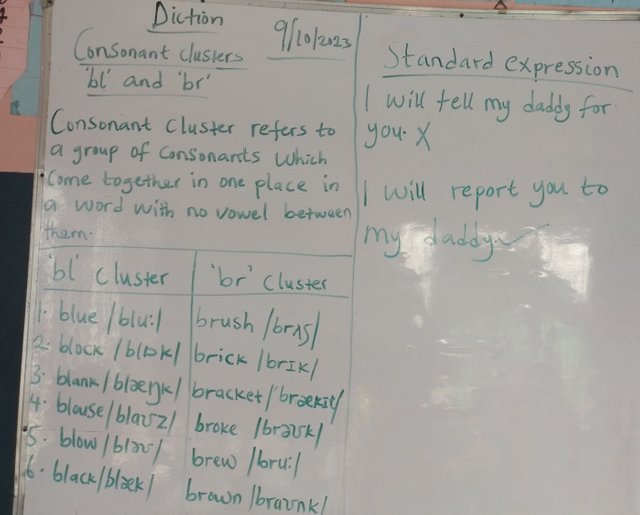 Diction
9/10/2023
Consonant clusters
'bl' and 'br'
Consonant cluster refers to
a group of consonants which
come together in one place in
a word with no vowel between
them.
'bl' cluster
'br' cluster
1. blue /blu:/
brush /brʌʃ/
2. block /blɒk/
brick /brɪk/
3. blank /blæŋk/
bracket /'brækɪt/
4. blouse /blaʊz/
broke /brəʊk/
5. blow /bləʊ/
brew /bru:/
6. black /blæk/
brown /braʊnk/
Standard expression
I will tell my daddy for
you. X
I will report you to
my daddy. ✓